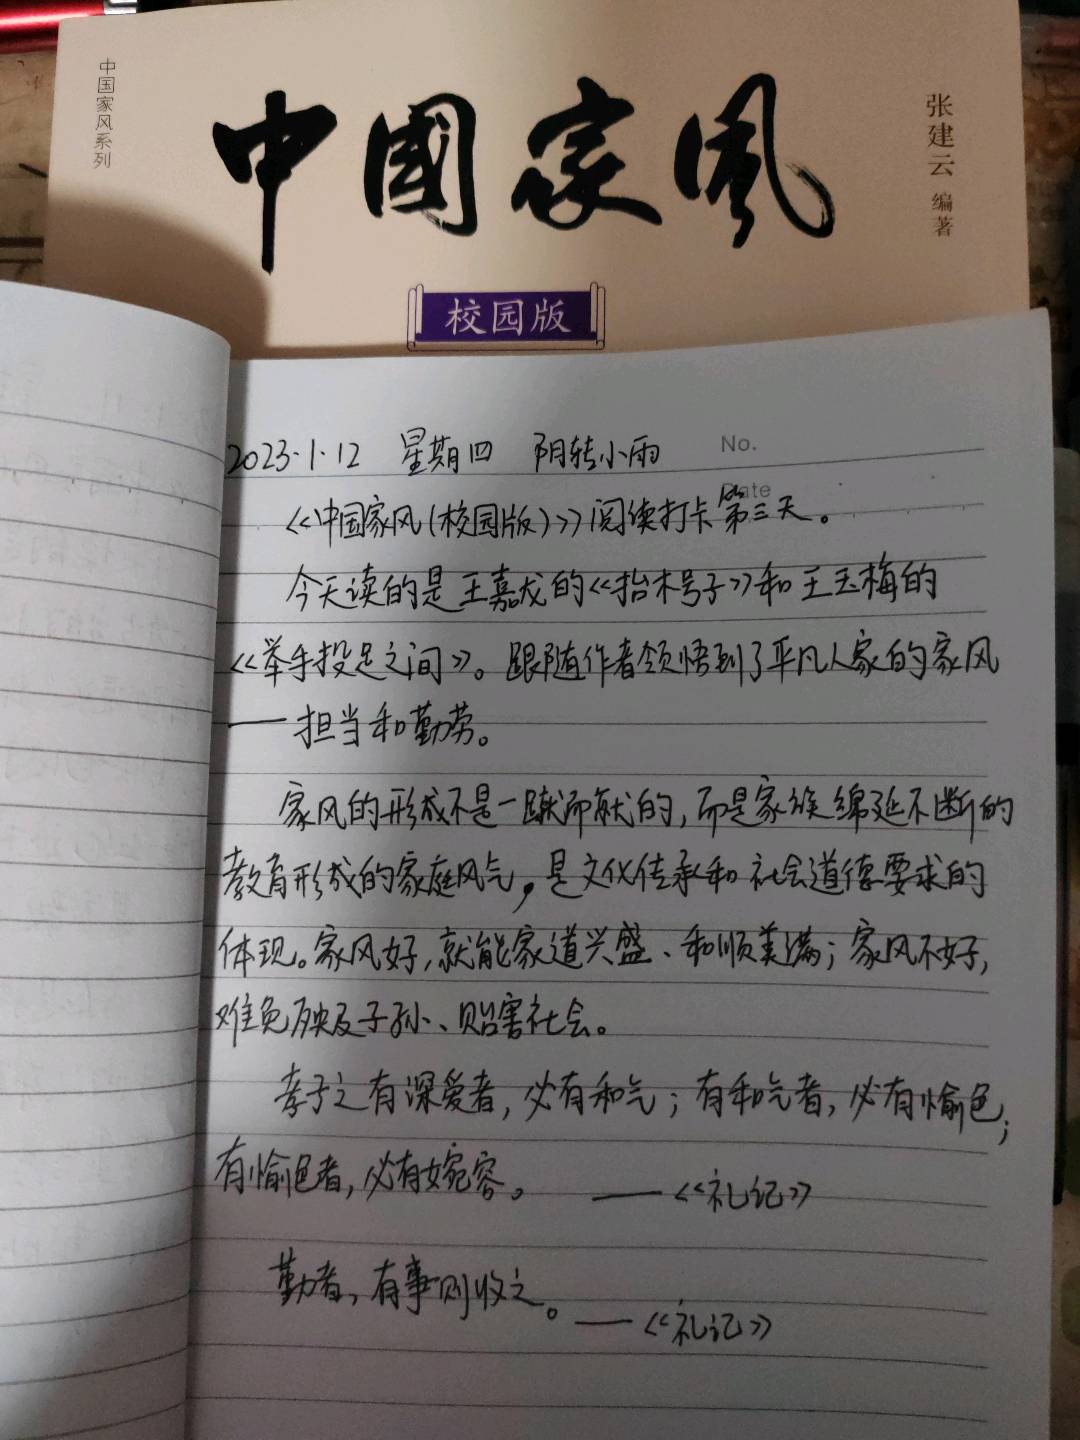 中国家风系列
中國家風
张建云 编著
校园版
No.
Date
2023.1.12 星期四 阴转小雨
《中国家风(校园版)》阅读打卡第三天。
今天读的是王嘉龙的《抬木号子》和王玉梅的
《举手投足之间》。跟随作者领悟到了平凡人家的家风
——担当和勤劳。
家风的形成不是一蹴而就的,而是家族绵延不断的
教育形成的家庭风气,是文化传承和社会道德要求的
体现。家风好,就能家道兴盛、和顺美满;家风不好,
难免殃及子孙、贻害社会。
孝子之有深爱者,必有和气;有和气者,必有愉色;
有愉色者,必有婉容。 ——《礼记》
勤者,有事则收之。——《礼记》